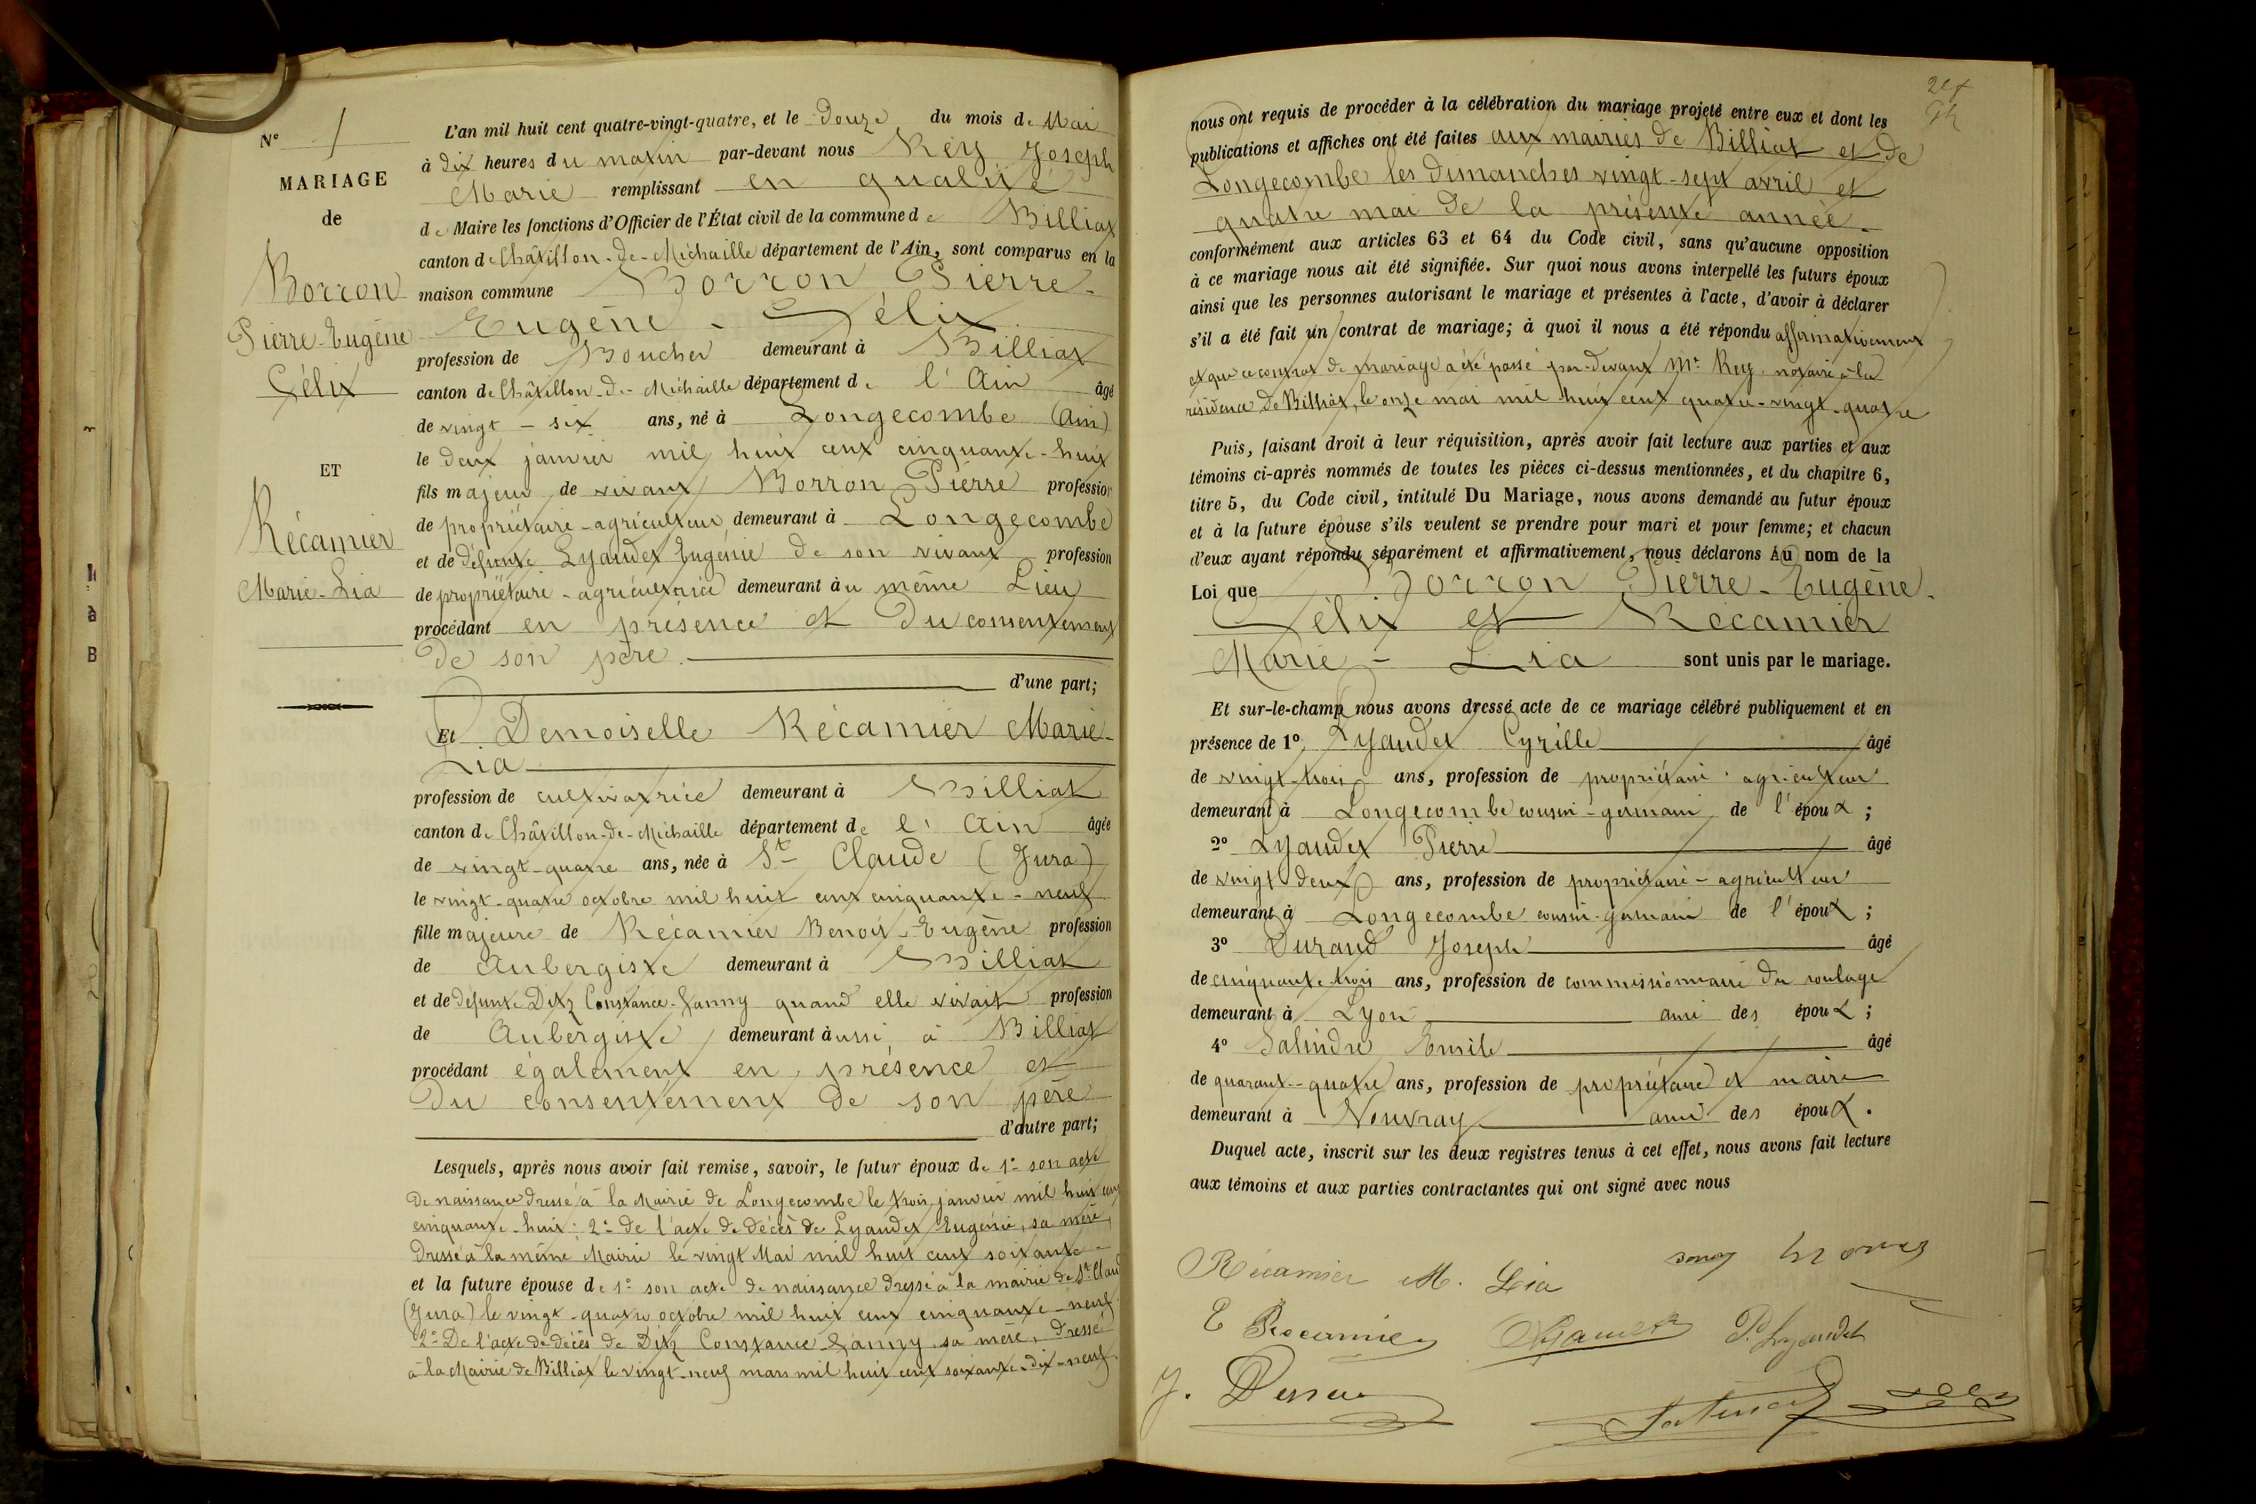 N° 1
MARIAGE
de
Borron
Pierre-Eugène
Félix
ET
Récamier
Marie-Lia
L'an mil huit cent quatre-vingt-quatre, et le douze du mois de Mai
à dix heures du matin par-devant nous Rey Joseph
Marie remplissant en qualité
de Maire les fonctions d'Officier de l'État civil de la commune de Billiat
canton de Châtillon-de-Michaille département de l'Ain, sont comparus en la
maison commune Borron Pierre-
Eugène-Félix
profession de Boucher demeurant à Billiat
canton de Châtillon-de-Michaille département de l'Ain âgé
de vingt-six ans, né à Longecombe (Ain)
le deux janvier mil huit cent cinquante-huit
fils majeur de vivant Borron Pierre profession
de propriétaire-agriculteur demeurant à Longecombe
et de défunte Lyaudet Eugénie de son vivant profession
de propriétaire-agricultrice demeurant au même Lieu
procédant en présence et du consentement
de son père.
d'une part;
Et Demoiselle Récamier Marie-
Lia
profession de cultivatrice demeurant à Billiat
canton de Châtillon-de-Michaille département de l'Ain âgée
de vingt-quatre ans, née à St Claude (Jura)
le vingt-quatre octobre mil huit cent cinquante-neuf
fille majeure de Récamier Benoit-Eugène profession
de Aubergiste demeurant à Billiat
et de défunte Ditz Constance-Fanny quand elle vivait profession
de Aubergiste demeurant aussi à Billiat
procédant également en présence et
du consentement de son père
d'autre part;
Lesquels, après nous avoir fait remise, savoir, le futur époux de 1° son acte
de naissance dressé à la Mairie de Longecombe le trois janvier mil huit cent
cinquante-huit; 2° de l'acte de décès de Lyaudet Eugénie, sa mère,
dressé à la même Mairie le vingt Mai mil huit cent soixante-
et la future épouse de 1° son acte de naissance dressé à la mairie de St Claude
(Jura) le vingt-quatre octobre mil huit cent cinquante-neuf
2° De l'acte de décès de Ditz Constance-Fanny sa mère, dressé
à la Mairie de Billiat le vingt-neuf mars mil huit cent soixante-dix-neuf.
nous ont requis de procéder à la célébration du mariage projeté entre eux et dont les
publications et affiches ont été faites aux mairies de Billiat et de
Longecombe les dimanches vingt-sept avril et
quatre mai de la présente année.
conformément aux articles 63 et 64 du Code civil, sans qu'aucune opposition
à ce mariage nous ait été signifiée. Sur quoi nous avons interpellé les futurs époux
ainsi que les personnes autorisant le mariage et présentes à l'acte, d'avoir à déclarer
s'il a été fait un contrat de mariage; à quoi il nous a été répondu affirmativement
et que ce contrat de mariage a été passé par-devant Mr Rey, notaire à la
résidence de Billiat, le onze mai mil huit cent quatre-vingt-quatre
Puis, faisant droit à leur réquisition, après avoir fait lecture aux parties et aux
témoins ci-après nommés de toutes les pièces ci-dessus mentionnées, et du chapitre 6,
titre 5, du Code civil, intitulé Du Mariage, nous avons demandé au futur époux
et à la future épouse s'ils veulent se prendre pour mari et pour femme; et chacun
d'eux ayant répondu séparément et affirmativement, nous déclarons Au nom de la
Loi que Borron Pierre-Eugène-
Félix et Récamier
Marie-Lia sont unis par le mariage.
Et sur-le-champ nous avons dressé acte de ce mariage célébré publiquement et en
présence de 1° Lyaudet Cyrille âgé
de vingt-trois ans, profession de propriétaire-agriculteur
demeurant à Longecombe cousin-germain de l'époux;
2° Lyaudet Pierre âgé
de vingt deux ans, profession de propriétaire-agriculteur
demeurant à Longecombe cousin-germain de l'époux;
3° Durand Joseph âgé
de cinquante-trois ans, profession de commissionnaire du roulage
demeurant à Lyon ami des époux;
4° Salindre Emile âgé
de quarante-quatre ans, profession de propriétaire et maire
demeurant à Vouvray ami des époux.
Duquel acte, inscrit sur les deux registres tenus à cet effet, nous avons fait lecture
aux témoins et aux parties contractantes qui ont signé avec nous
Récamier M. Lia
E Récamier P. Lyaudet